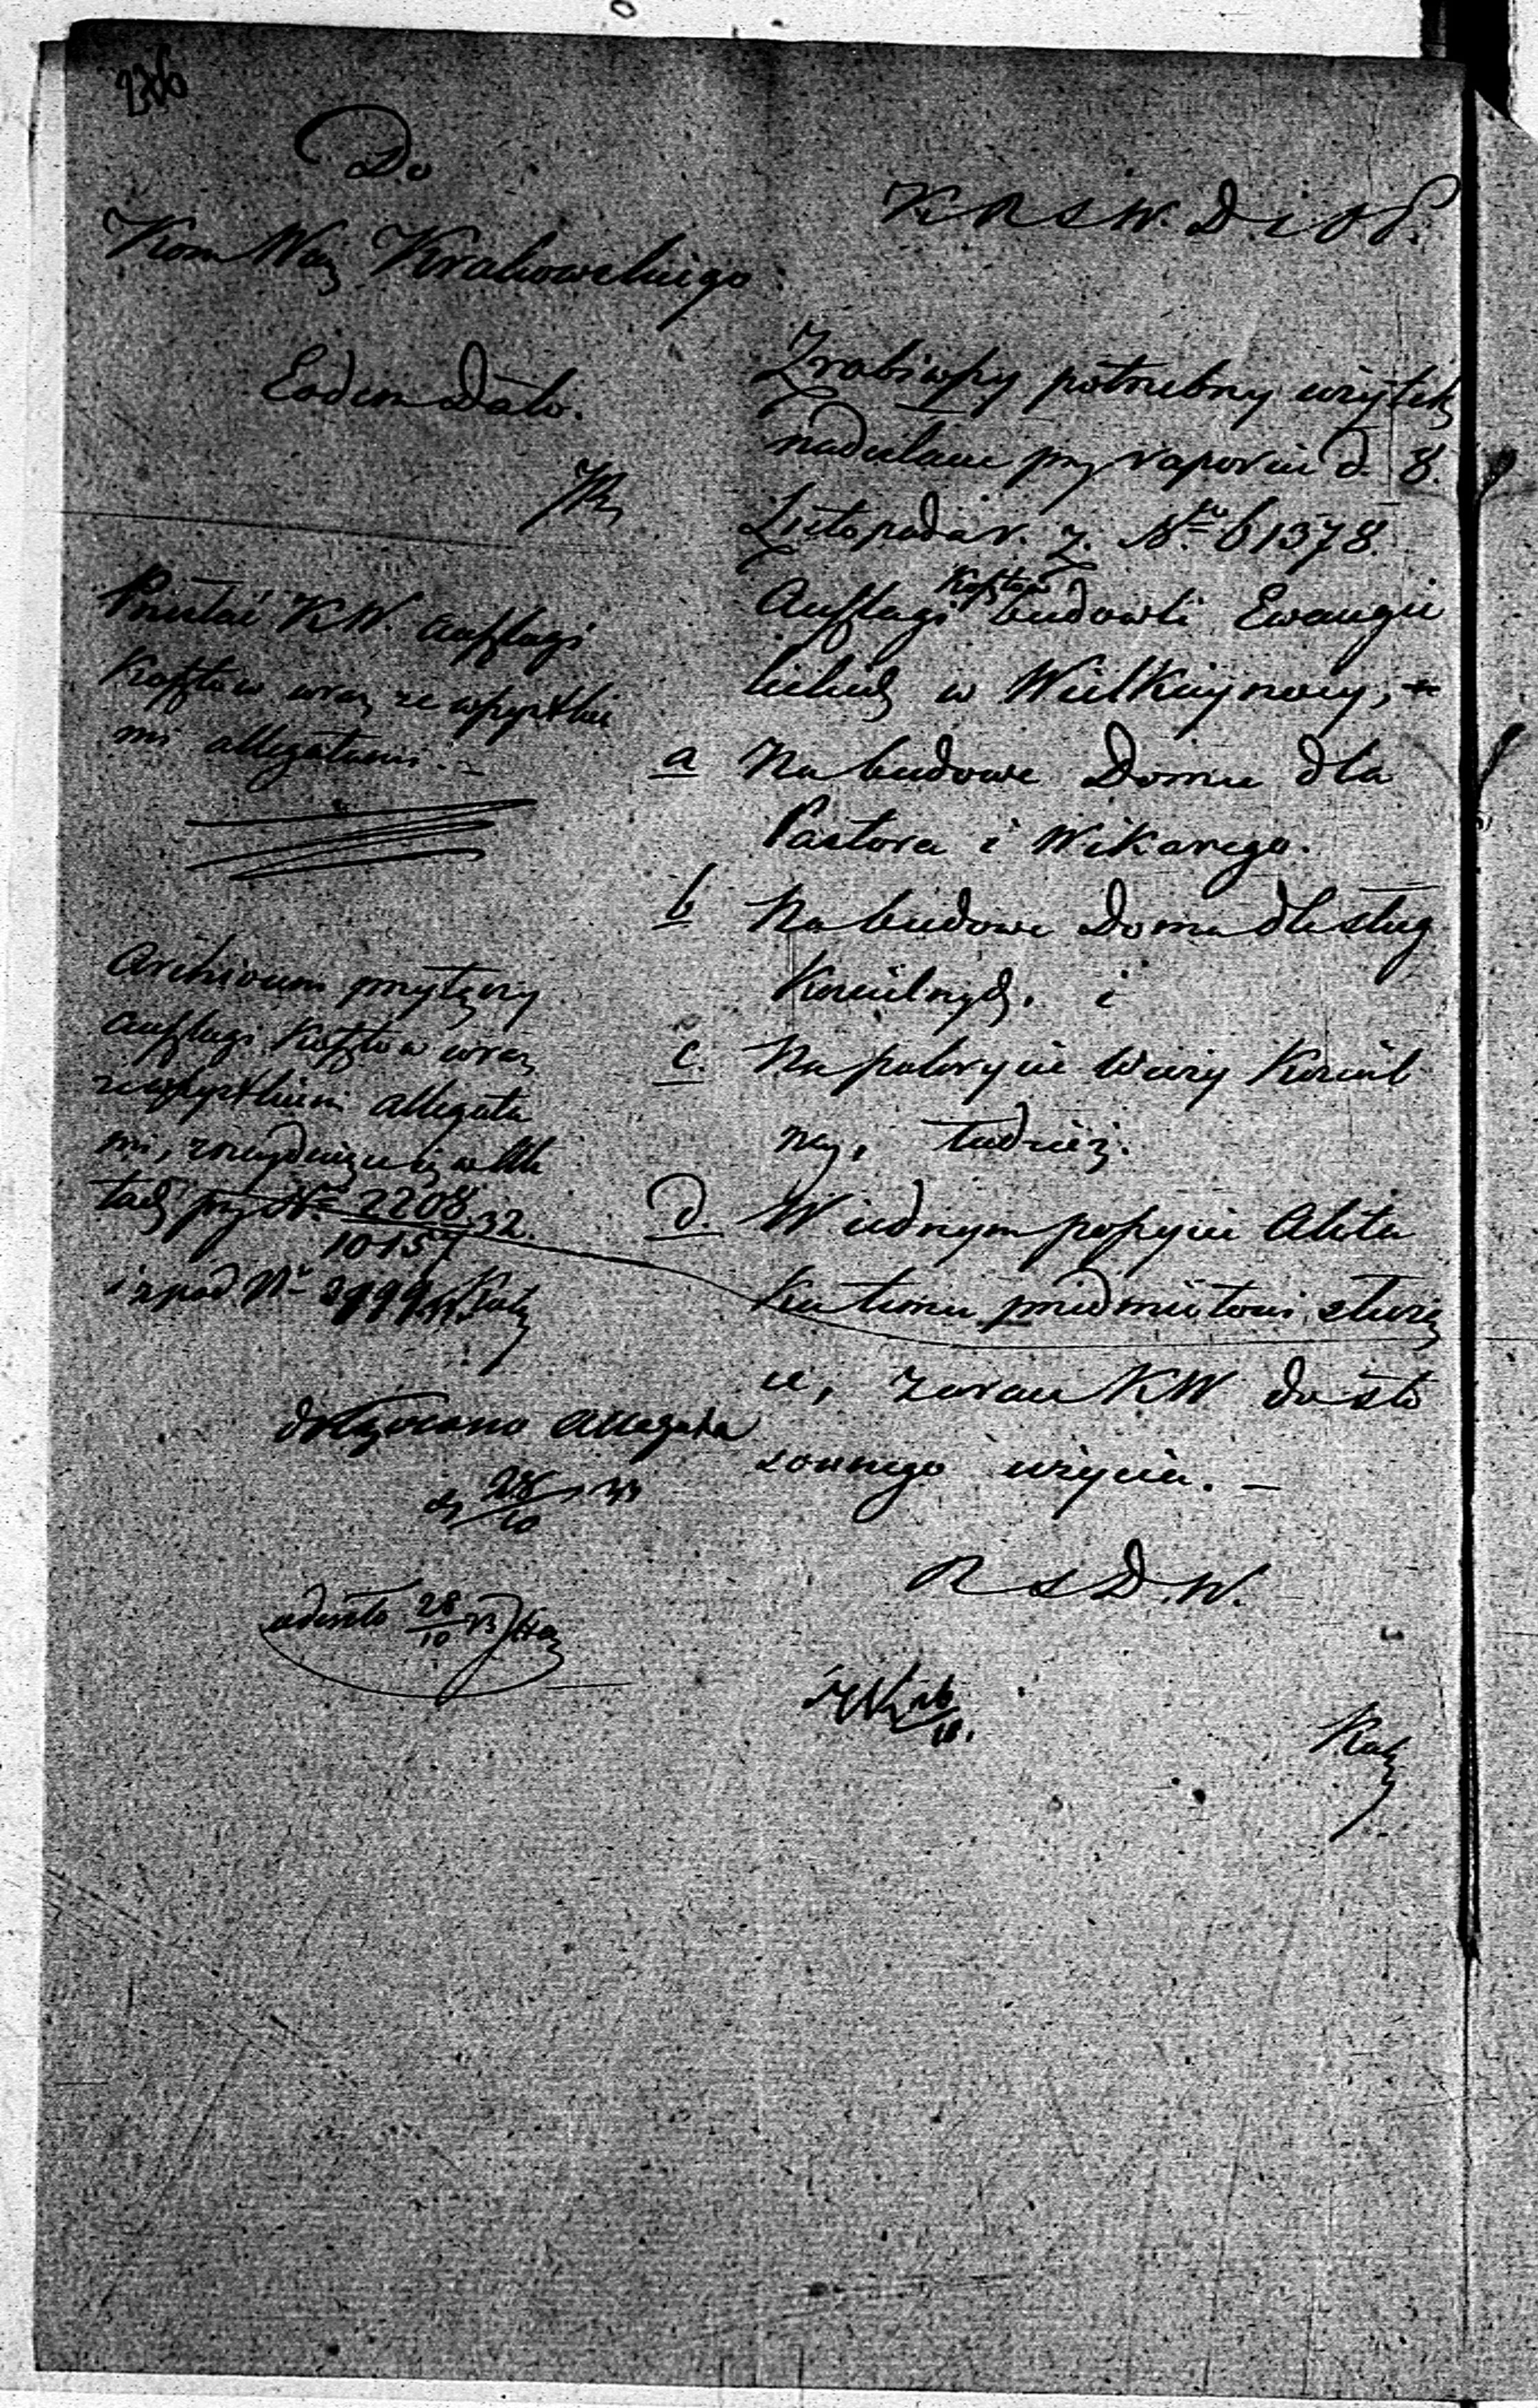 226
Do
Kom Woj Krakowskiego
Eodem Dato.
Przesłać KW. Anszlagi
Kosztów wraz ze wszystkie
mi allegatami. –
Archivum przyłączy
Anszlagi Kosztów wraz
ze wszystkiemi allegata
mi, znajdujące się w Ak
tach przy Nrze 2208/10157 32.
i zpod Nr
dołączono Allegata
28/10 33
odeszło 28/10 33
K R S W. D. i O P.
Zrobiwszy potrzebny użytek
nadesłane przy raporcie d. 8.
Listopada r. z. Nro 61378.
Anszlagi Kosztów budowli Ewangie
lickich w Wielkiej
a Na budowe Domu dla
Pastora i Wikarego.
b Na budowe Domu dla sług
Kościelnych. i
c. Na pokrycie Wieży Kościel
ney, tudzież.
d. W iednym poszycie Akta
ku temu przedmiotowi służą
ce, zwraca KW do sto
sownego użycia. –
R S D. W.
26/10.